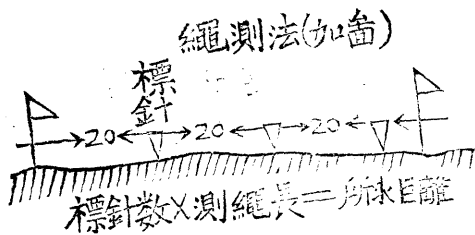 繩測法(加啚)
標針
20 20 20
標針数×測繩長＝所求距離